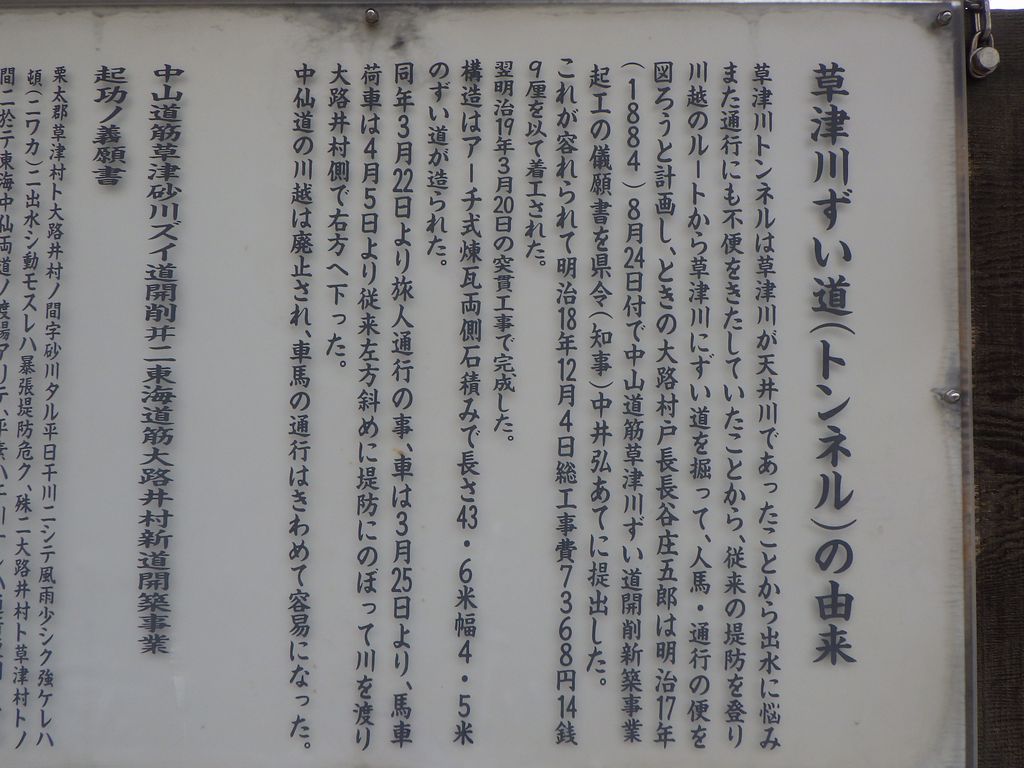 草津川ずい道(トンネル)の由来
草津川トンネルは草津川が天井川であったことから出水に悩み
また通行にも不便をきたしていたことから、従来の堤防を登り
川越のルートから草津川にずい道を掘って、人馬・通行の便を
図ろうと計画し、ときの大路村戸長長谷庄五郎は明治17年
(1884)8月24日付で中山道筋草津川ずい道開削新築事業
起工の儀願書を県令(知事)中井弘あてに提出した。
これが容れられて明治18年12月4日総工事費7368円14銭
9厘を以て着工された。
翌明治19年3月20日の突貫工事で完成した。
構造はアーチ式煉瓦両側石積みで長さ43・6米幅4・5米
のずい道が造られた。
同年3月22日より旅人通行の事、車は3月25日より、馬車
荷車は4月5日より従来左方斜めに堤防にのぼって川を渡り
大路井村側で右方へ下った。
中仙道の川越は廃止され、車馬の通行はきわめて容易になった。
中山道筋草津砂川ズイ道開削井二東海道筋大路井村新道開築事業
起功ノ義願書
栗太郡草津村ト大路井村ノ間字砂川タル平日干川ニシテ風雨少シク強ケレハ
頓(ニワカ)ニ出水シ動モスレハ暴張堤防危ク、殊ニ大路井村ト草津村トノ
間ニ於テ東海中仙両道ノ渡場アリテ、平素ハ